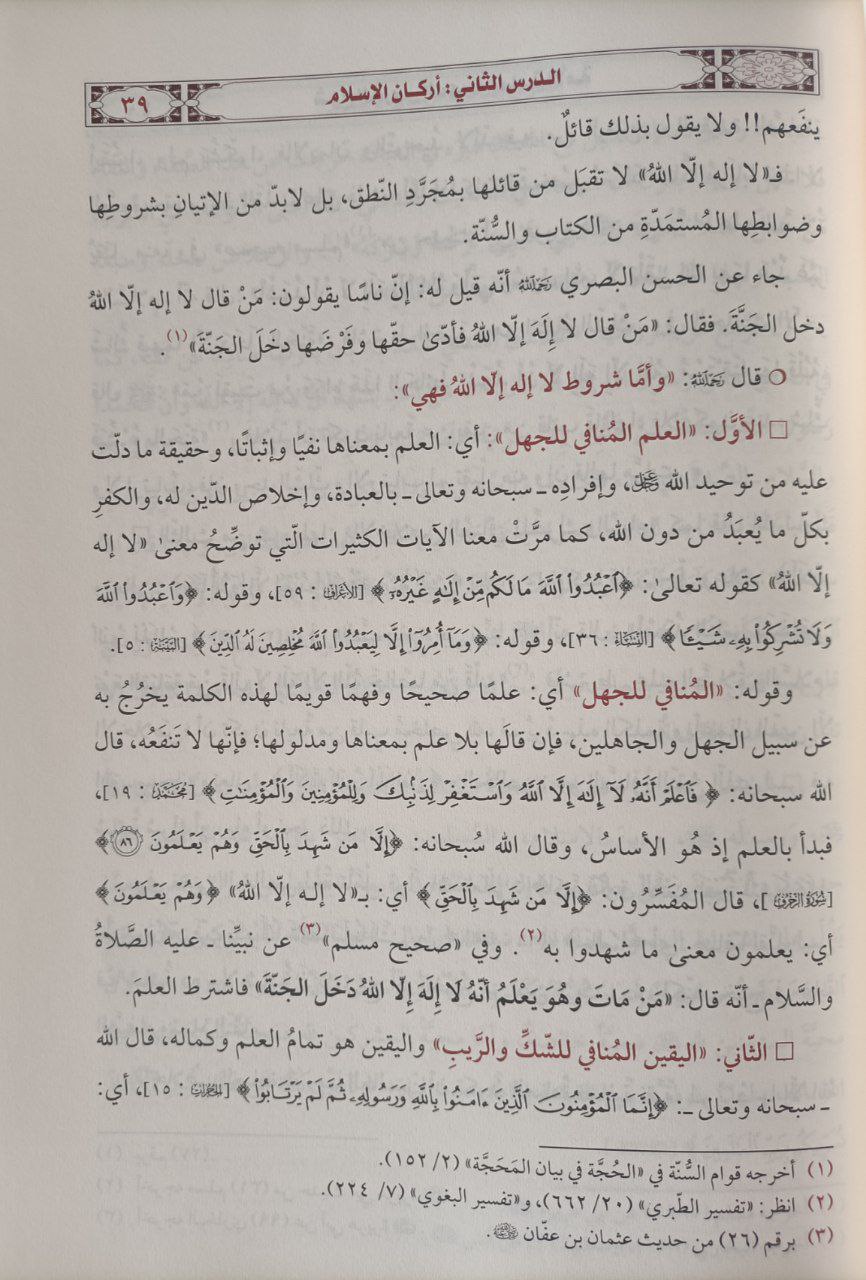 الدرس الثاني: أركان الإسلام
٣٩
ينفَعهم!! ولا يقول بذلك قائلٌ.
فـ«لا إله إلّا اللهُ» لا تقبَل من قائلها بمُجَرَّدِ النّطق، بل لابدّ من الإتيانِ بشروطِها
وضوابطِها المُستمَدّةِ من الكتاب والسُّنّة.
جاء عن الحسن البصري رَحِمَهُ اللهُ أنّه قيل له: إنّ ناسًا يقولون: مَنْ قال لا إله إلّا اللهُ
دخل الجَنَّةَ. فقال: «مَنْ قال لا إِلَهَ إلّا اللهُ فأدّىٰ حقّها وفَرْضَها دخَلَ الجَنّةَ»(١).
○ قال رَحِمَهُ اللهُ: «وأمَّا شروط لا إله إلّا اللهُ فهي»:
□ الأوَّل: «العلم المُنافي للجهل»: أي: العلم بمعناها نفيًا وإثباتًا، وحقيقة ما دلّت
عليه من توحيد الله عَزَّوَجَلَّ، وإفرادِه ـ سبحانه وتعالى ـ بالعبادة، وإخلاص الدّين له، والكفرِ
بكلّ ما يُعبَدُ من دون الله، كما مرَّتْ معنا الآيات الكثيرات الّتي توضِّحُ معنىٰ «لا إله
إلّا اللهُ» كقوله تعالىٰ: ﴿ٱعۡبُدُواْ ٱللَّهَ مَا لَكُم مِّنۡ إِلَٰهٍ غَيۡرُهُۥ﴾ [الأعراف : ٥٩]، وقوله: ﴿وَٱعۡبُدُواْ ٱللَّهَ
وَلَا تُشۡرِكُواْ بِهِۦ شَيۡـٔٗا﴾ [النساء : ٣٦]، وقوله: ﴿وَمَآ أُمِرُوٓاْ إِلَّا لِيَعۡبُدُواْ ٱللَّهَ مُخۡلِصِينَ لَهُ ٱلدِّينَ﴾ [البينة : ٥].
وقوله: «المُنافي للجهل» أي: علمًا صحيحًا وفهمًا قويمًا لهذه الكلمة يخرُجُ به
عن سبيل الجهل والجاهلين، فإن قالَها بلا علم بمعناها ومدلولها؛ فإنّها لا تَنفَعُه، قال
الله سبحانه: ﴿فَٱعۡلَمۡ أَنَّهُۥ لَآ إِلَٰهَ إِلَّا ٱللَّهُ وَٱسۡتَغۡفِرۡ لِذَنۢبِكَ وَلِلۡمُؤۡمِنِينَ وَٱلۡمُؤۡمِنَٰتِ﴾ [محمد : ١٩]،
فبدأ بالعلم إذ هُو الأساسُ، وقال الله سُبحانه: ﴿إِلَّا مَن شَهِدَ بِٱلۡحَقِّ وَهُمۡ يَعۡلَمُونَ ٨٦﴾
[سورة الزخرف]، قال المُفَسِّرُون: ﴿إِلَّا مَن شَهِدَ بِٱلۡحَقِّ﴾ أي: بـ«لا إله إلّا اللهُ» ﴿وَهُمۡ يَعۡلَمُونَ﴾
أي: يعلمون معنىٰ ما شهدوا به(٢). وفي «صحيح مسلم»(٣) عن نبيِّنا ـ عليه الصَّلاةُ
والسَّلام ـ أنّه قال: «مَنْ مَاتَ وهُوَ يَعْلَمُ أنّهُ لَا إِلَهَ إِلّا اللهُ دَخَلَ الجَنّةَ» فاشترط العلمَ.
□ الثّاني: «اليقين المُنافي للشّكِّ والرَّيبِ» واليقين هو تمامُ العلم وكماله، قال الله
ـ سبحانه وتعالى ـ: ﴿إِنَّمَا ٱلۡمُؤۡمِنُونَ ٱلَّذِينَ ءَامَنُواْ بِٱللَّهِ وَرَسُولِهِۦ ثُمَّ لَمۡ يَرۡتَابُواْ﴾ [الحجرات : ١٥]، أي:
(١) أخرجه قوام السُّنّة في «الحُجَّة في بيان المَحَجَّة» (٢/ ١٥٢).
(٢) انظر: «تفسير الطّبري» (٢٠/ ٦٦٢)، و«تفسير البغوي» (٧/ ٢٢٤).
(٣) برقم (٢٦) من حديث عثمان بن عفّان رَضِيَ اللهُ عَنْهُ.